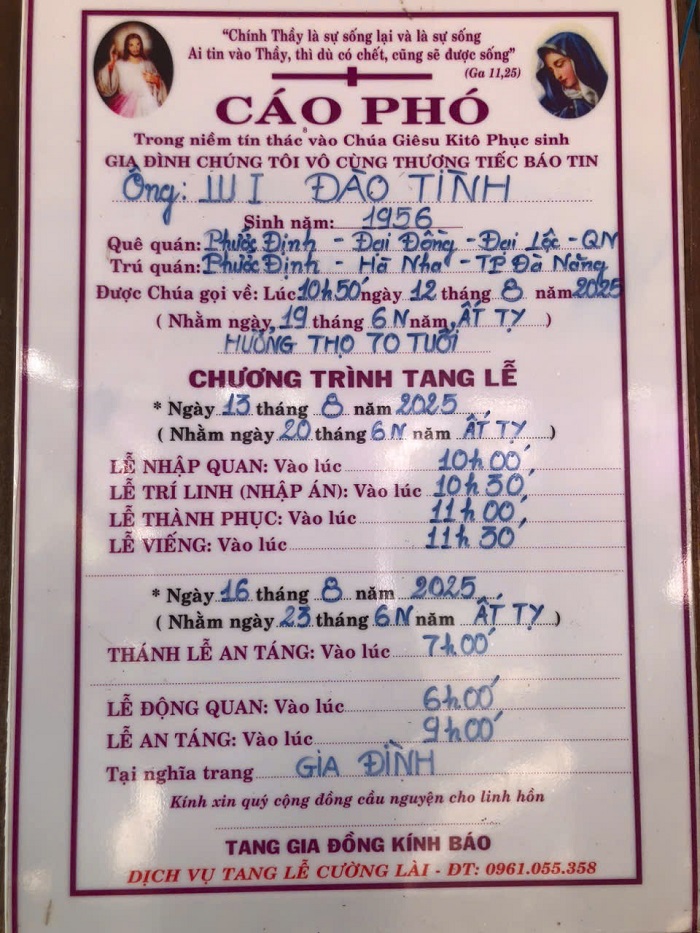 “Chính Thầy là sự sống lại và là sự sống
Ai tin vào Thầy, thì dù có chết, cũng sẽ được sống”
(Ga 11,25)
CÁO PHÓ
Trong niềm tín thác vào Chúa Giêsu Kitô Phục sinh
GIA ĐÌNH CHÚNG TÔI VÔ CÙNG THƯƠNG TIẾC BÁO TIN
Ông: LUI ĐÀO TÌNH
Sinh năm: 1956
Quê quán: Phước Định - Đại Đồng - Đại Lộc - QN
Trú quán: Phước Định - Hà Nha - TP Đà Nẵng
Được Chúa gọi về: Lúc 10h50' ngày 12 tháng 8 năm 2025
( Nhằm ngày 19 tháng 6N năm ẤT TỴ )
HƯỞNG THỌ 70 TUỔI
CHƯƠNG TRÌNH TANG LỄ
* Ngày 13 tháng 8 năm 2025
( Nhằm ngày 20 tháng 6N năm ẤT TỴ )
LỄ NHẬP QUAN: Vào lúc 10h00'
LỄ TRÍ LINH (NHẬP ÁN): Vào lúc 10h30'
LỄ THÀNH PHỤC: Vào lúc 11h00'
LỄ VIẾNG: Vào lúc 11h30'
* Ngày 16 tháng 8 năm 2025
( Nhằm ngày 23 tháng 6N năm ẤT TỴ )
THÁNH LỄ AN TÁNG: Vào lúc 7h00'
LỄ ĐỘNG QUAN: Vào lúc 6h00'
LỄ AN TÁNG: Vào lúc 9h00'
Tại nghĩa trang GIA ĐÌNH
Kính xin quý cộng đồng cầu nguyện cho linh hồn
TANG GIA ĐỒNG KÍNH BÁO
DỊCH VỤ TANG LỄ CƯỜNG LÀI - ĐT: 0961.055.358